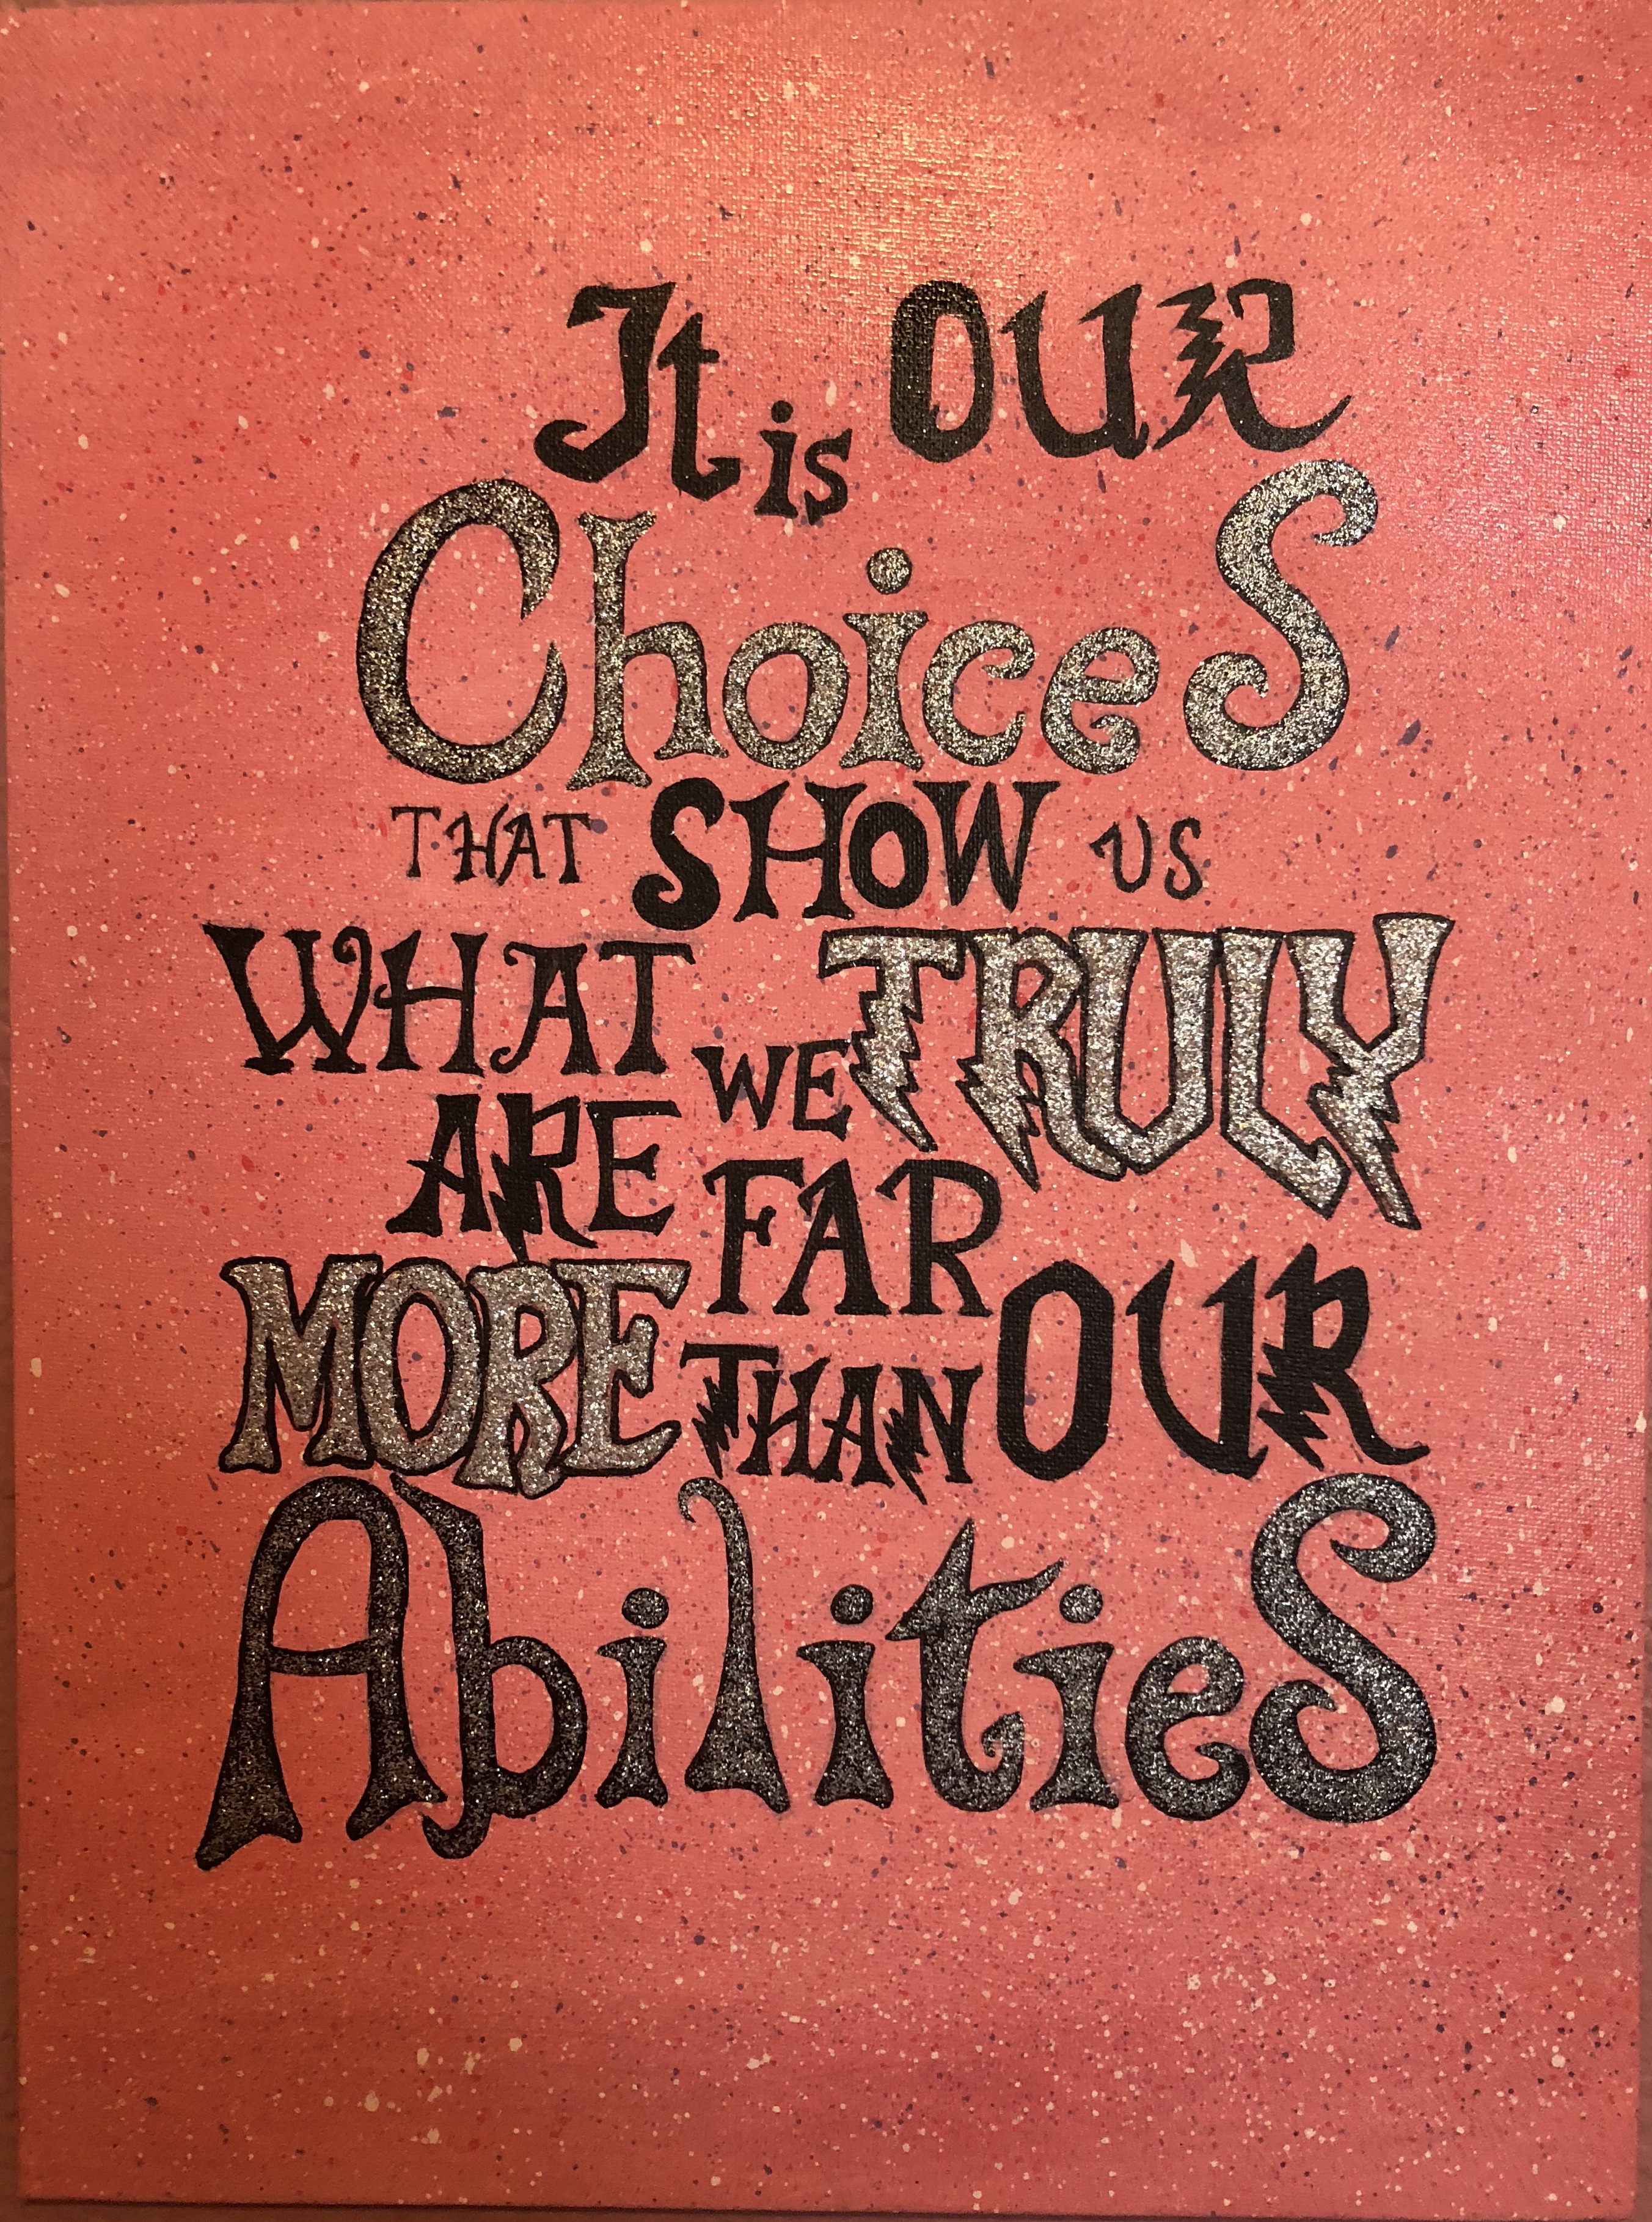 It is OUR
ChoiceS
THAT SHOW US
WHAT WE TRULY
ARE FAR
MORE THAN OUR
AbilitieS